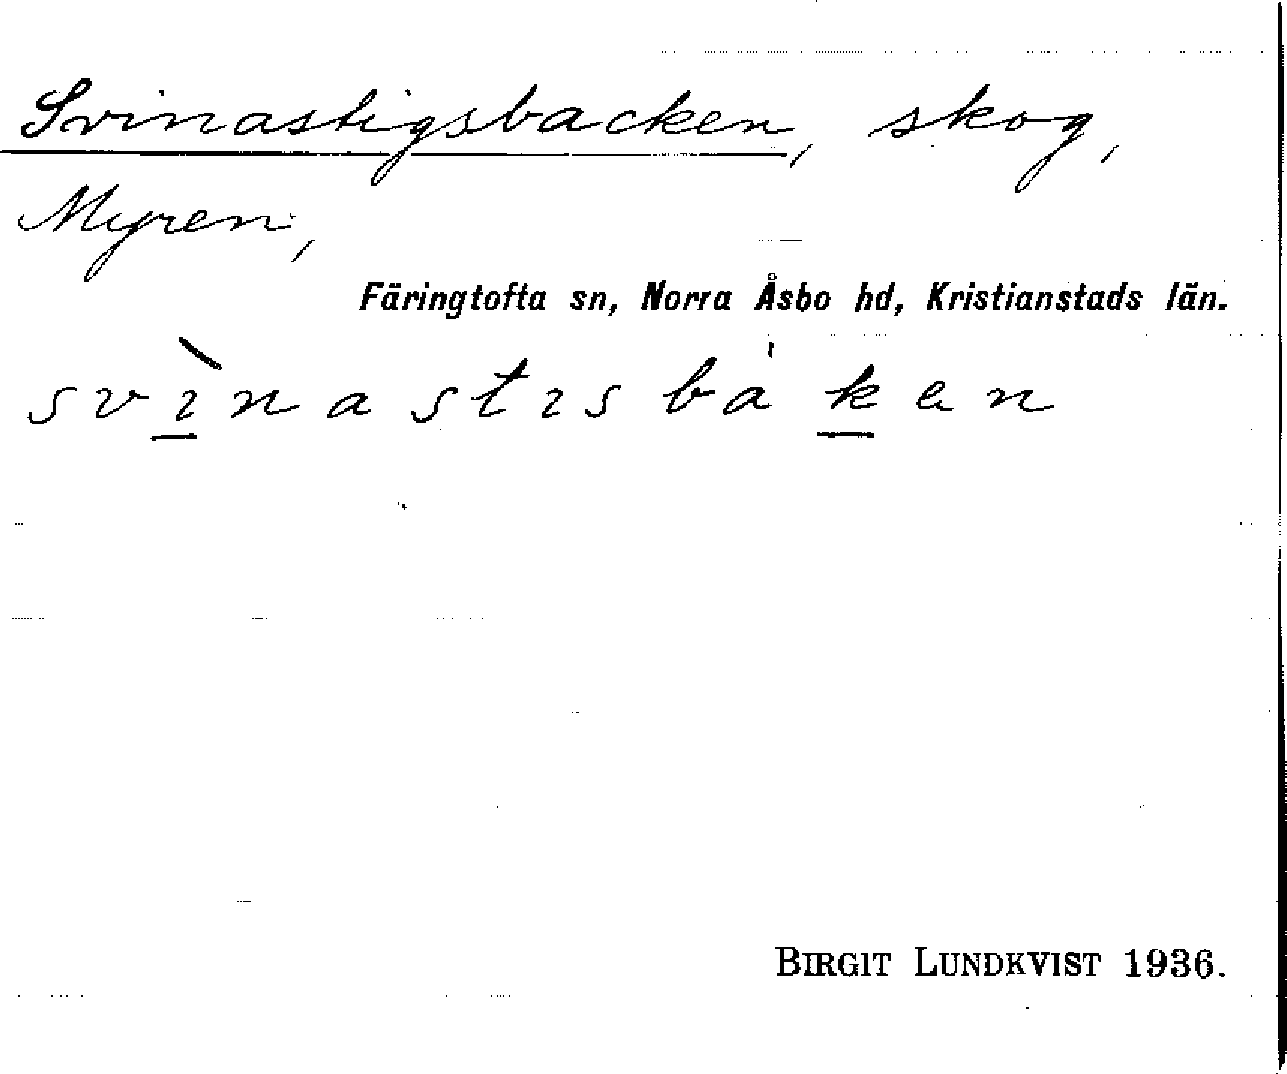 Svinastigsbacken, skog,
Myren,
Färingtofta sn, Norra Åsbo hd, Kristianstads län.
svìnastısbáken
BIRGIT LUNDKVIST 1936.